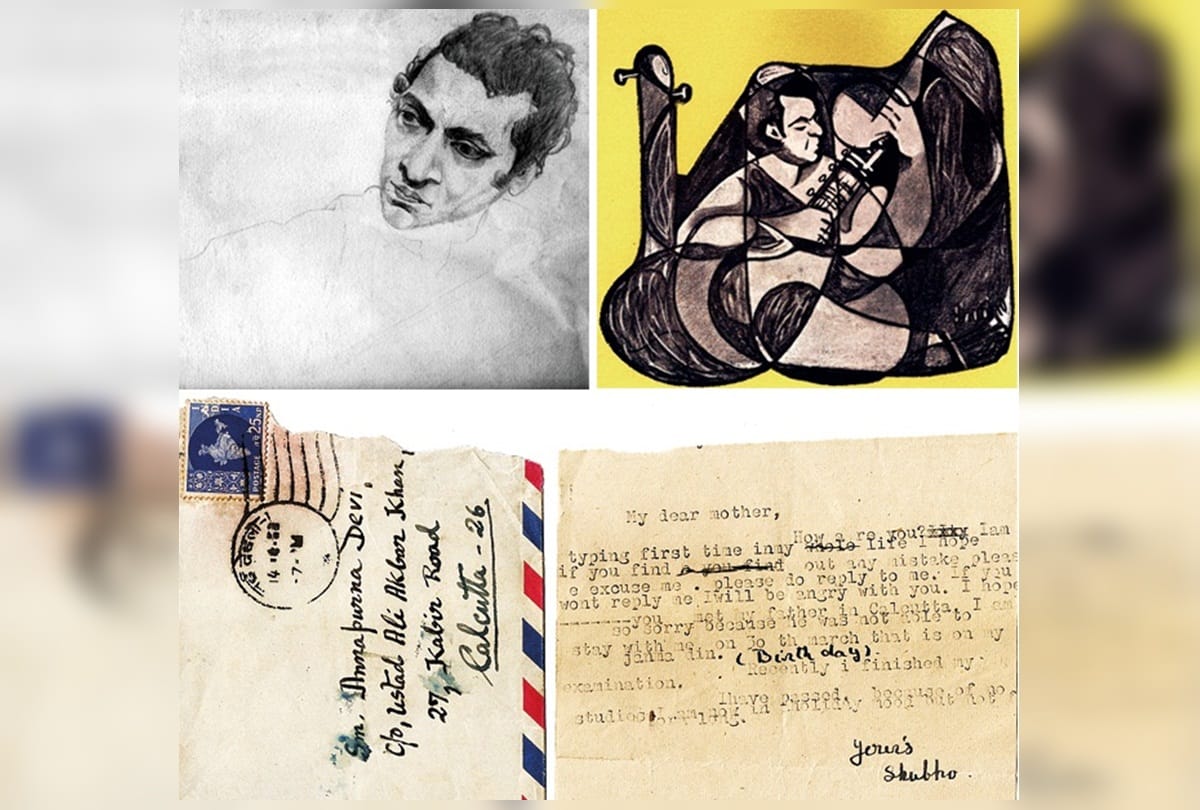 INDIA
25 NP
POSTAGE
Sm. Annapurna Devi,
C/o, Ustad Ali Akbar Khan,
27, Kabir Road
Calcutta - 26
My dear mother,
How a re you? Iam
typing first time inmy whole life I hope
if you find a you find out any mistake pleas
e excuse me . please do reply to me. If you
wont reply me Iwill be angry with you. I hope
you met my father in Calcutta. I am
so sorry because he was not able to
stay with me on 30 th march that is on my
janma din. (Birth day).
Recently i finished my
examination.
Ihave passed, because of go
studios I am now in holiday mood but not
Yours's
Shubho.